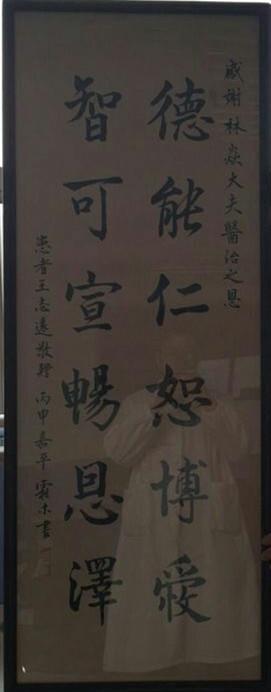 感謝林焱大夫醫治之恩
德能仁恕博愛
智可宣暢恩澤
患者王志遠敬贈 丙申嘉平 霖木書